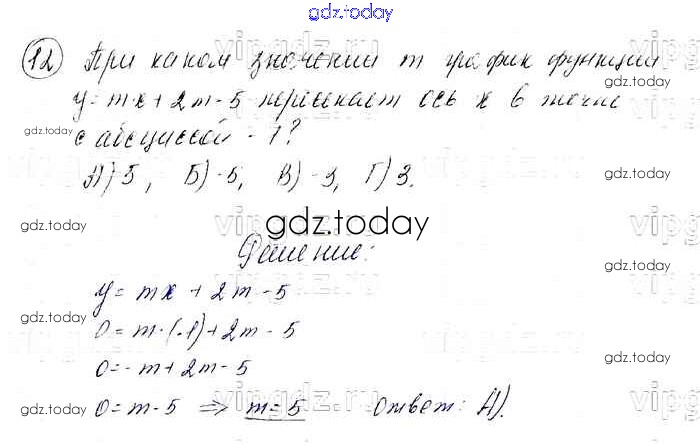 gdz.today
12 При каком значении m график функции
y = mx + 2m - 5 пересекает ось x в точке
с абсциссой -1?
А) 5, Б) -5, В) -3, Г) 3.
gdz.today
Решение:
y = mx + 2m - 5
0 = m·(-1) + 2m - 5
0 = -m + 2m - 5
0 = m - 5 ⇒ m = 5 Ответ: А).
gdz.today
gdz.today
gdz.today
gdz.today
gdz.today
gdz.today
gdz.today
gdz.today